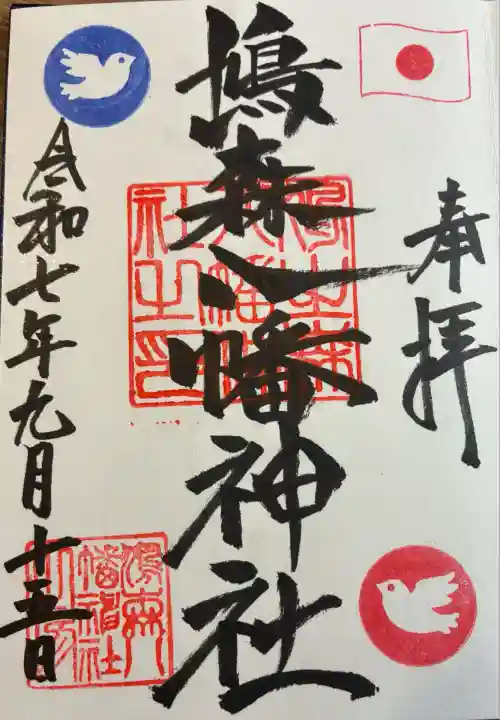 奉拝
鳩森八幡神社
鳩之森
八幡神
社之印
令和七年九月十五日
鳩森八
幡神社